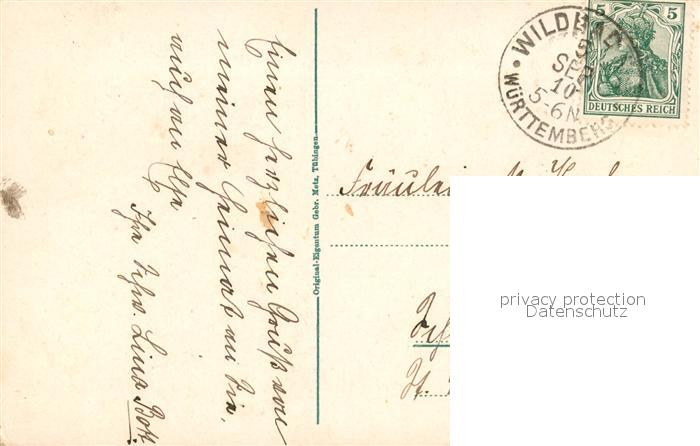 Einen herzlichen Gruß von
meiner Heimat an Sie,
auch an Else
Ihre Schw. Lina Bott.
Original-Eigentum Gebr. Metz, Tübingen.
WILDBAD
SEP
10
5-6N
WÜRTTEMBERG
5 5
DEUTSCHES REICH
Fräulein
privacy protection
Datenschutz